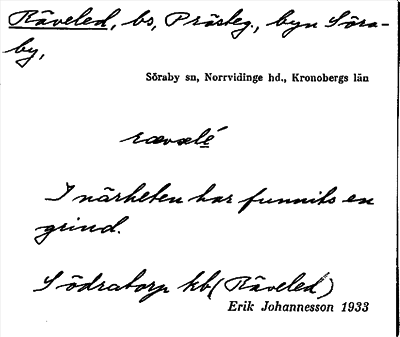 Räveled, bs, Prästeg., byn Söra-
by,
Söraby sn, Norrvidinge hd., Kronobergs län
rævəlé
I närheten har funnits en
grind.
Södratorp kb (Räveled)
Erik Johannesson 1933